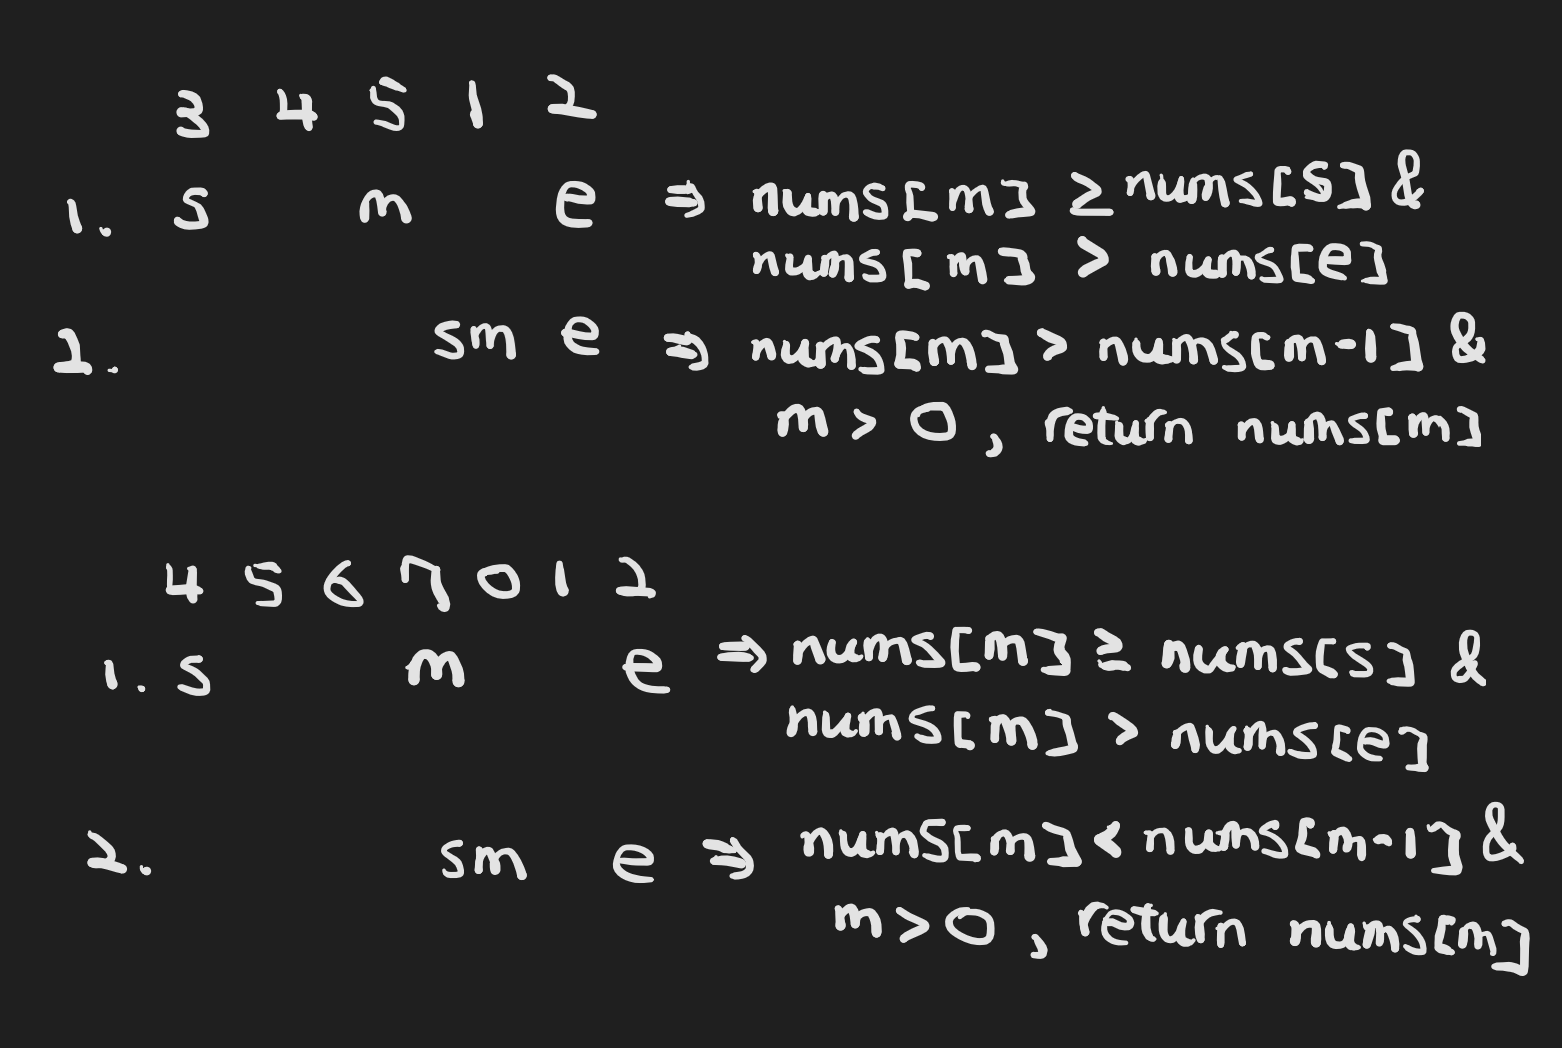 3 4 5 1 2
1. s m e ⇒ nums[m] ≥ nums[s] &
nums[m] > nums[e]
2. sm e ⇒ nums[m] > nums[m-1] &
m > 0, return nums[m]
4 5 6 7 0 1 2
1. s m e ⇒ nums[m] ≥ nums[s] &
nums[m] > nums[e]
2. sm e ⇒ nums[m] < nums[m-1] &
m > 0, return nums[m]